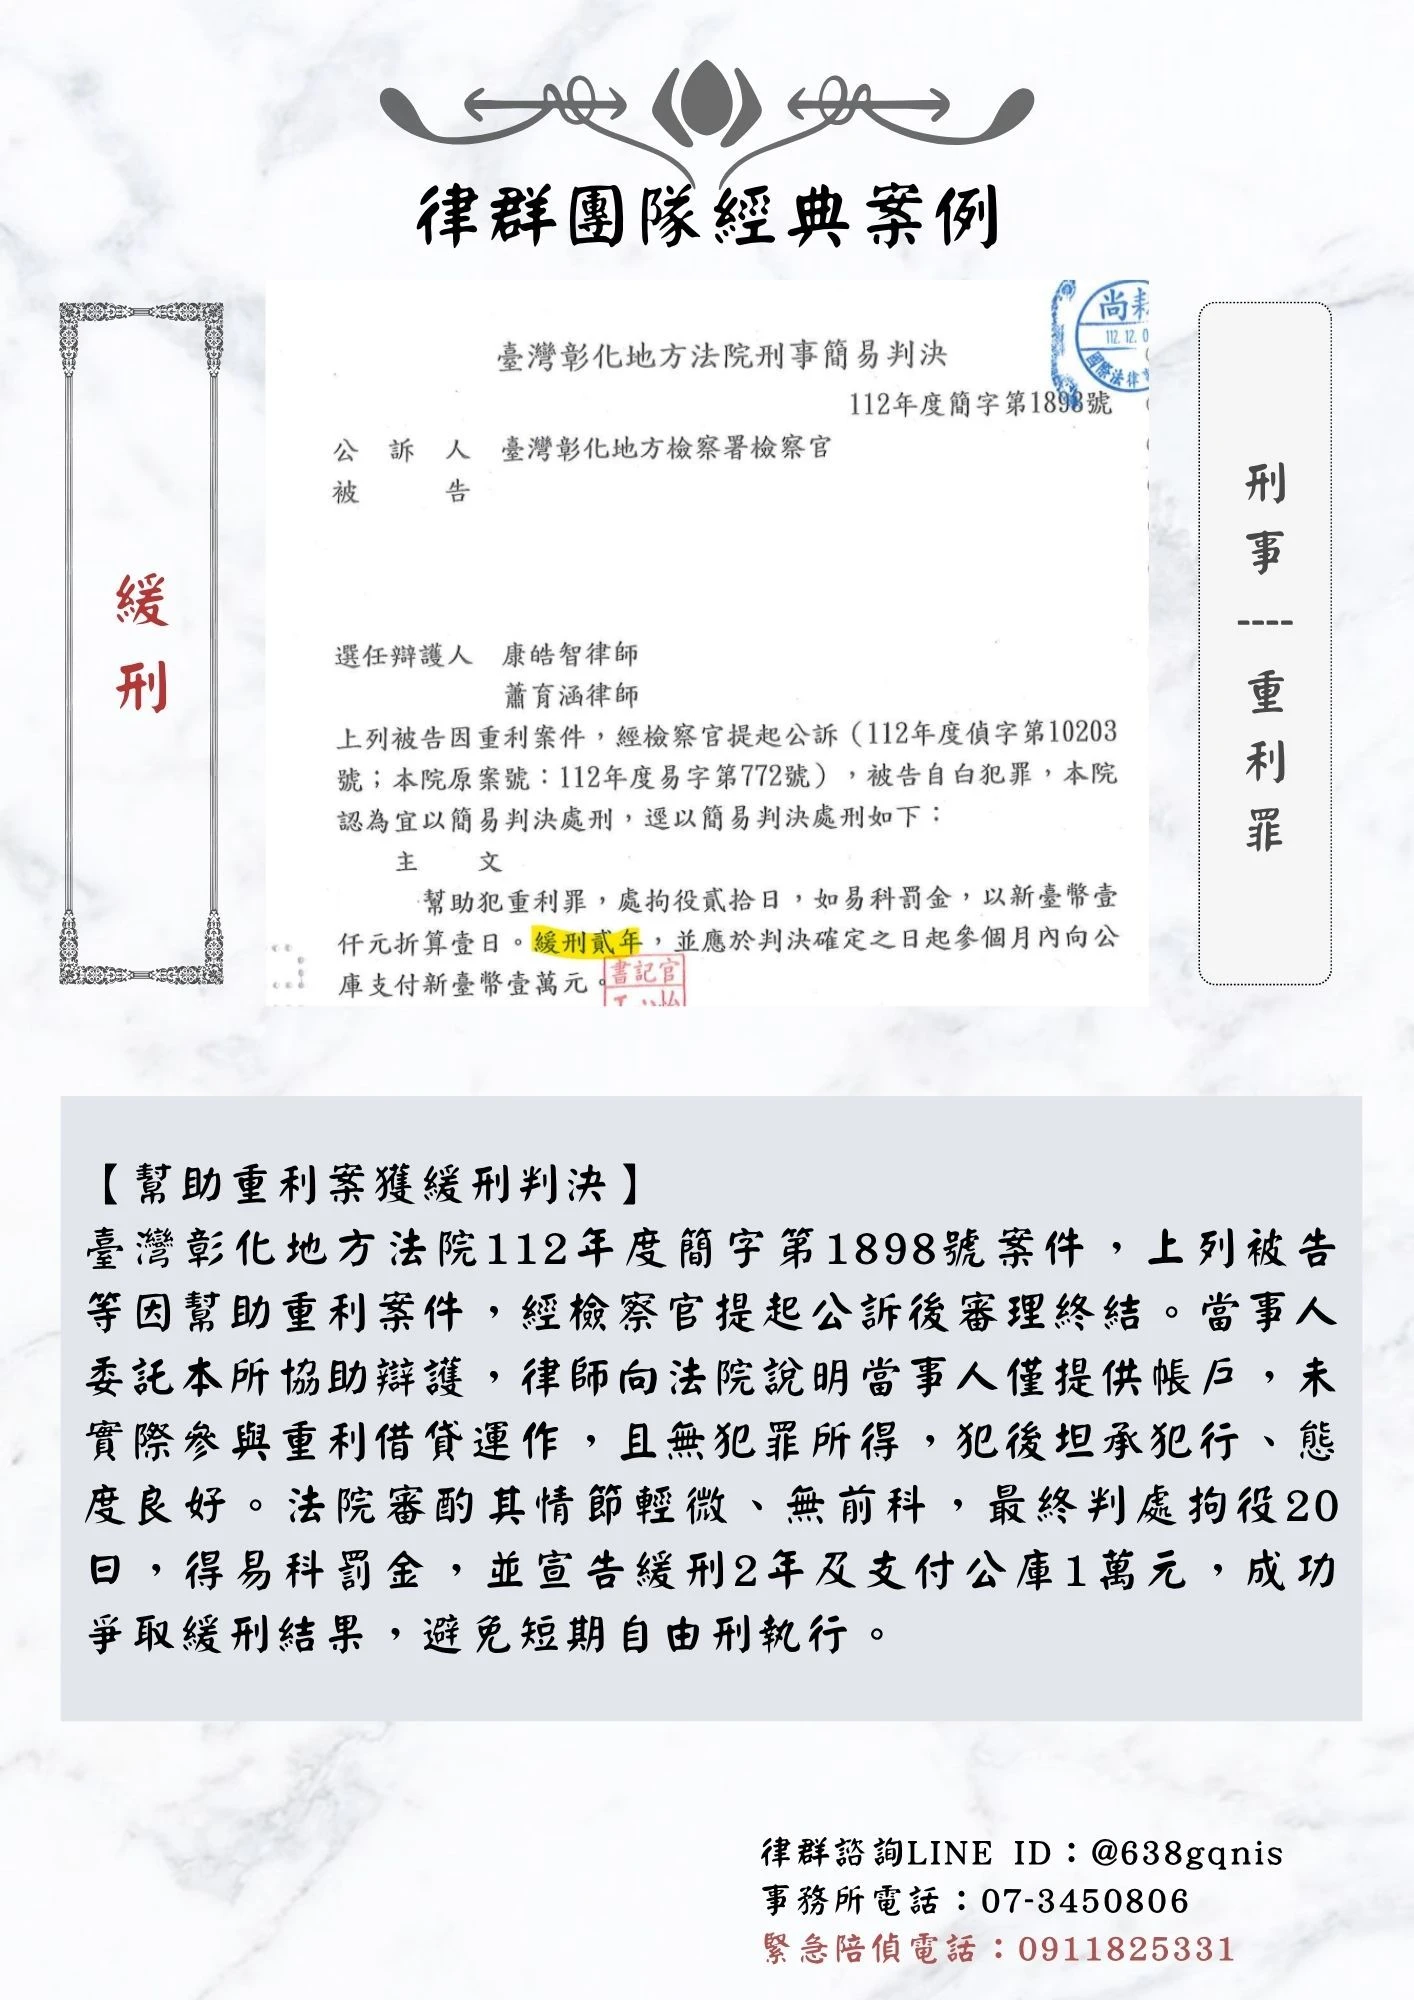 律群團隊經典案例
緩刑
尚
112.12.0
國際法律
臺灣彰化地方法院刑事簡易判決
112年度簡字第1898號
公訴人 臺灣彰化地方檢察署檢察官
被告
選任辯護人 康皓智律師
蕭育涵律師
上列被告因重利案件，經檢察官提起公訴（112年度偵字第10203
號；本院原案號：112年度易字第772號），被告自白犯罪，本院
認為宜以簡易判決處刑，逕以簡易判決處刑如下：
主文
幫助犯重利罪，處拘役貳拾日，如易科罰金，以新臺幣壹
仟元折算壹日。緩刑貳年，並應於判決確定之日起參個月內向公
庫支付新臺幣壹萬元。
書記官
刑事----重利罪
【幫助重利案獲緩刑判決】
臺灣彰化地方法院112年度簡字第1898號案件，上列被告
等因幫助重利案件，經檢察官提起公訴後審理終結。當事人
委託本所協助辯護，律師向法院說明當事人僅提供帳戶，未
實際參與重利借貸運作，且無犯罪所得，犯後坦承犯行、態
度良好。法院審酌其情節輕微、無前科，最終判處拘役20
日，得易科罰金，並宣告緩刑2年及支付公庫1萬元，成功
爭取緩刑結果，避免短期自由刑執行。
律群諮詢LINE ID：@638gqnis
事務所電話：07-3450806
緊急陪偵電話：0911825331